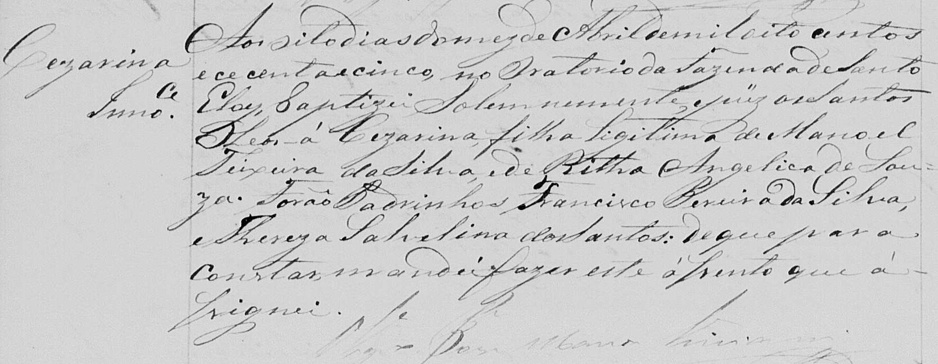 Cezarina
Innoce.
Aos oito dias do mez de Abril de mil oito centos
e cecenta e cinco, no Oratorio da Fazenda de Santo
Eloy, Baptizei Solemnemente, e puz os Santos
Oleos á Cezarina, filha ligitima de Manoel
Teixeira da Silva, e de Ritha Angelica de Sou-
za. Forão Padrinhos, Francisco Pereira da Silva,
e Thereza Salvelina dos Santos: de que para
constar, mandei fazer este áscento que á-
ssignei.